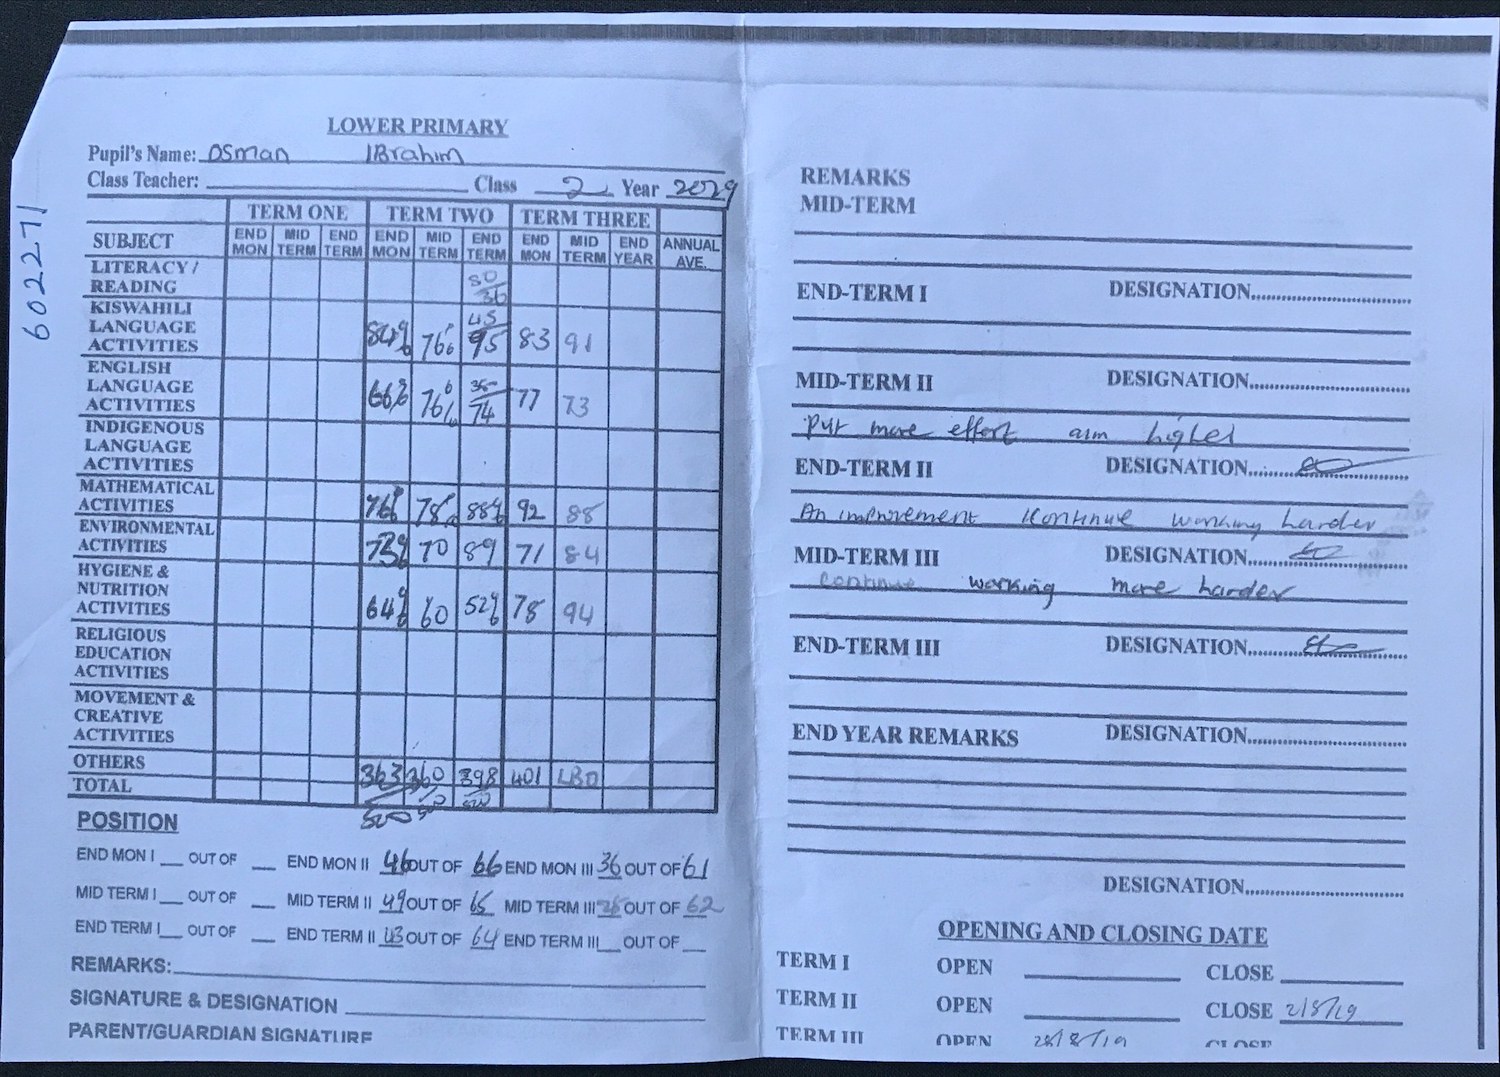 LOWER PRIMARY
Pupil's Name: Osman IBrahim
Class Teacher: Class 2 Year 2029
602271
TERM ONE TERM TWO TERM THREE
SUBJECT END MON MID TERM END TERM END MON MID TERM END TERM END MON MID TERM END YEAR ANNUAL AVE.
LITERACY / READING 50 36
KISWAHILI LANGUAGE ACTIVITIES 84% 76% 45 95 83 91
ENGLISH LANGUAGE ACTIVITIES 66% 76% 74 77 73
INDIGENOUS LANGUAGE ACTIVITIES
MATHEMATICAL ACTIVITIES 76% 78% 88% 92 88
ENVIRONMENTAL ACTIVITIES 73% 70 89 71 84
HYGIENE & NUTRITION ACTIVITIES 64% 60 52% 78 94
RELIGIOUS EDUCATION ACTIVITIES
MOVEMENT & CREATIVE ACTIVITIES
OTHERS 363 360 398 401
TOTAL 500 500 500
POSITION
END MON I OUT OF END MON II 46 OUT OF 66 END MON III 36 OUT OF 61
MID TERM I OUT OF MID TERM II 49 OUT OF 65 MID TERM III OUT OF 62
END TERM I OUT OF END TERM II 43 OUT OF 64 END TERM III OUT OF
REMARKS:
SIGNATURE & DESIGNATION
PARENT/GUARDIAN SIGNATURE
REMARKS
MID-TERM
END-TERM I DESIGNATION
MID-TERM II DESIGNATION
Put more effort aim higher
END-TERM II DESIGNATION
An improvement Kontinue working harder
MID-TERM III DESIGNATION
Continue working more harder
END-TERM III DESIGNATION
END YEAR REMARKS DESIGNATION
DESIGNATION
OPENING AND CLOSING DATE
TERM I OPEN CLOSE
TERM II OPEN CLOSE 2/8/19
TERM III OPEN 26/8/19 CLOSE